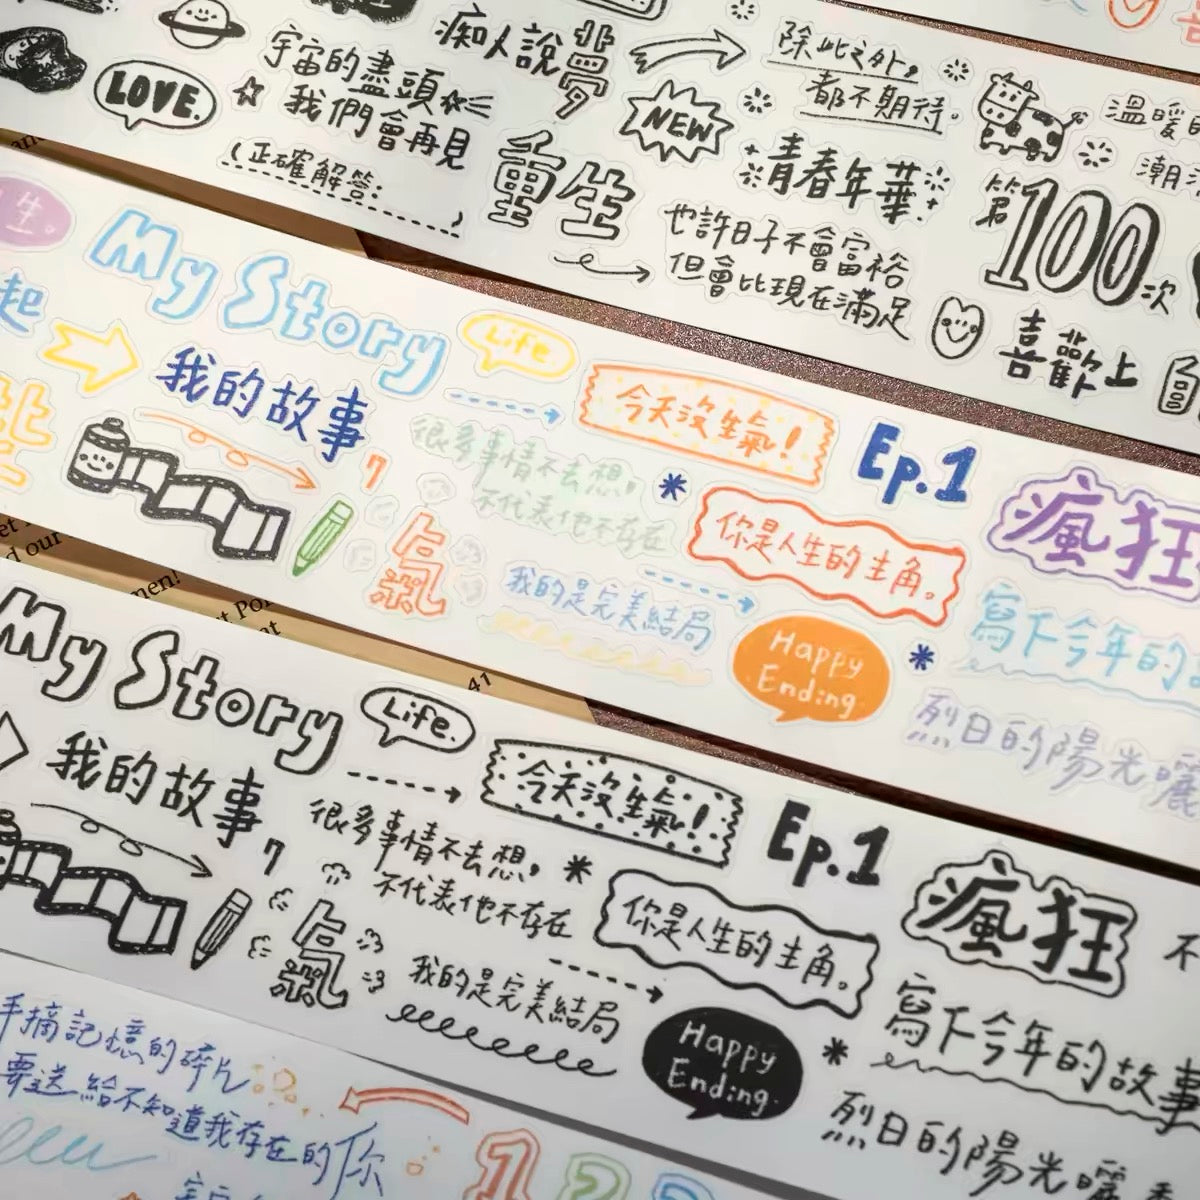 癡人說夢
除此之外，
都不期待。
宇宙的盡頭
我們會再見
LOVE.
NEW
溫暖
正確解答:
重生
青春年華
第100次
也許日子不會富裕
但會比現在滿足
喜歡上
生。
My Story
Life
起
我的故事
今天沒生氣!
Ep.1
瘋狂
很多事情不去想，
不代表他不存在
氣
你是人生的主角。
我的是完美結局
Happy
Ending
寫下今年的
烈日的陽光曬
men!
41
My Story
Life.
我的故事
今天沒生氣!
Ep.1
瘋狂
不
很多事情不去想，
不代表他不存在
氣
你是人生的主角。
我的是完美結局
Happy
Ending.
寫下今年的故事
烈日的陽光曬
手摘記憶的碎片
要送給不知道我存在的你
1 2 3